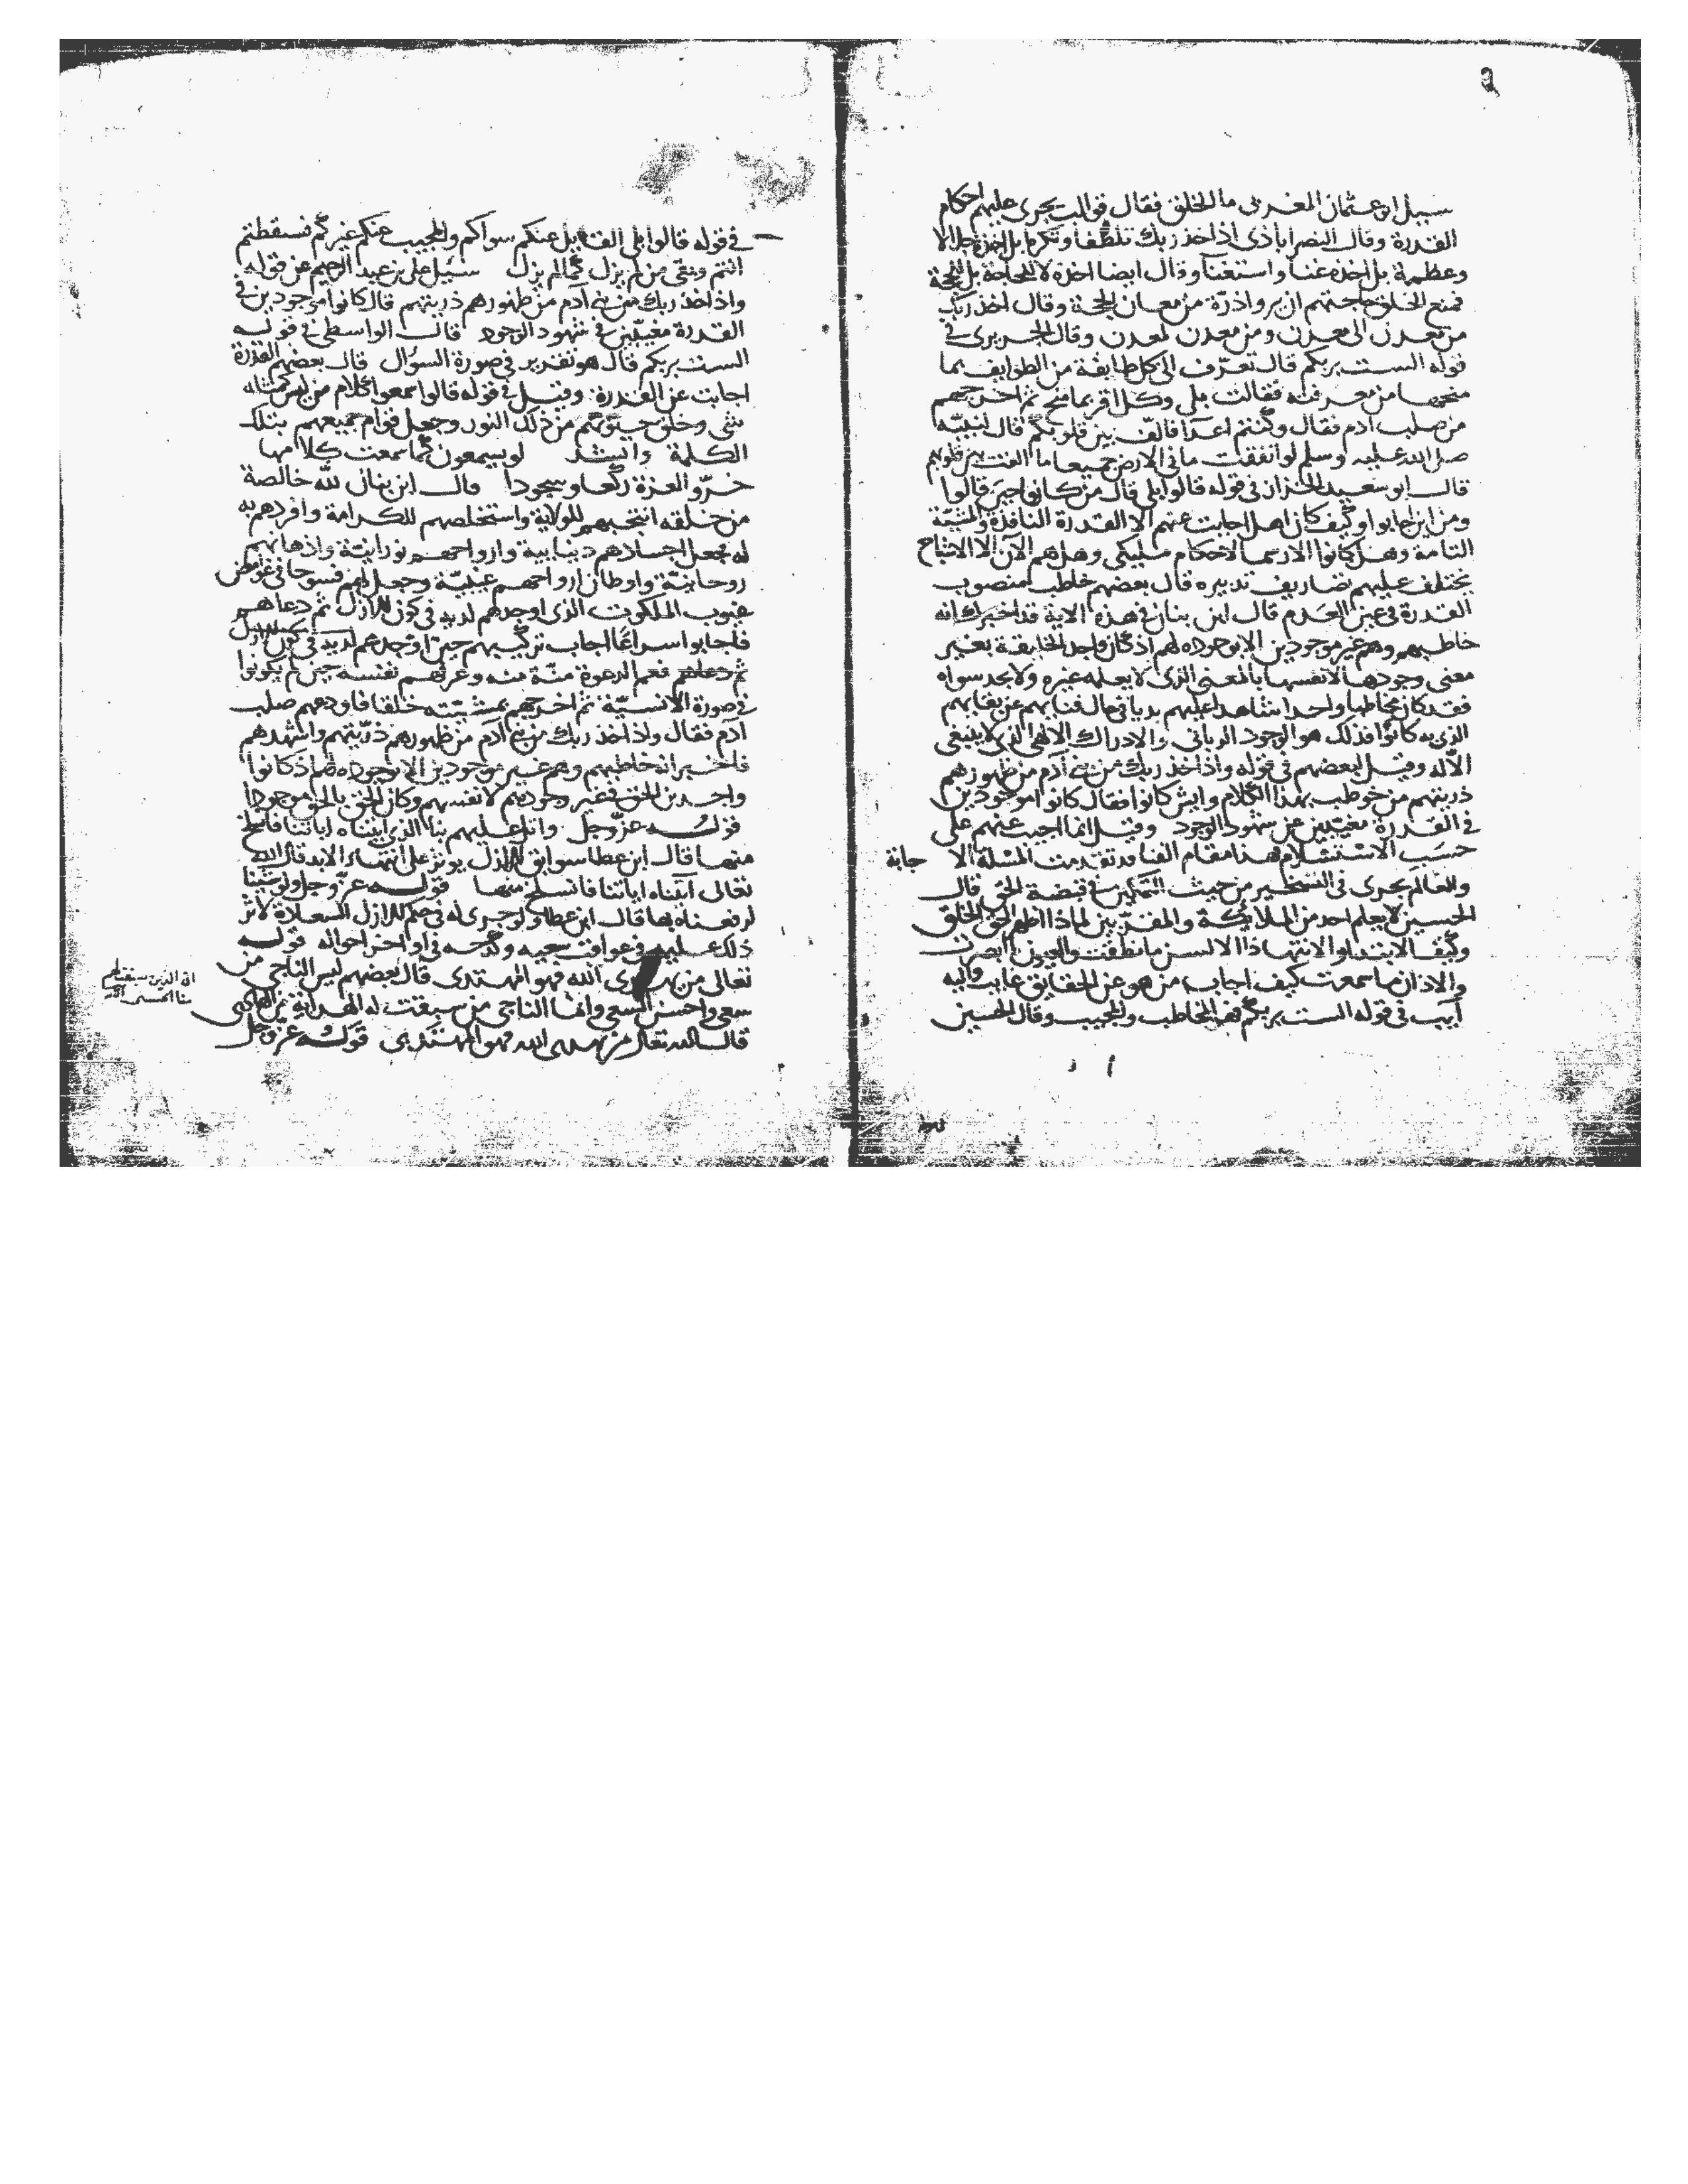 سيل ابو عثمان المغربى ما الخلق فقال قوالب يجرى عليهم احكام
القدرة وقال النصراباذى اذ اخذ ربك تلطفا وتكرما بل اخذه جلالا
وعظمة بل اخذه غنا واستغنا وقال ايضا اخذه لا للحاجة بل للحجة
فمنع الخلق حاجتهم ان يروا ذرة من معان الحجة وقال اخذ ربك
من معدن الى معدن ومن معدن لمعدن وقال الجريرى فى
قوله الست بربكم قال تعرّف الى كل طايفة من الطوايف بما
منحها من معرفته فقالت بلى وكل اقر بما منح ثم اخرجهم
من صلب ادم فقال وكنتم اعدا فالّف بين قلوبكم قال لنبيّه
صلى الله عليه وسلم لو انفقت ما فى الارض جميعا ما الفت بين قلوبهم
قال ابو سعيد الخزاز فى قوله قالوا بلى قال من كانوا حين قالوا
ومن اين اجابوا وكيف كان اصل اجابت عنهم الا القدرة النافذة والمشيّة
التامة وهل كانوا الا رسما لاحكام مليكى وهل هم الآن الا الاشباح
يختلف عليهم تصاريف تدبيره قال بعضهم خاطب منصوب
القدرة فى عين العدم قال ابن بنان فى هذه الاية قد اخبرك انه
خاطبهم وهم غير موجودين الا بوجوده لهم اذ كان واجد الخليقة بغير
معنى وجودها لانفسها بالمعنى الذى لا يعلمه غيره ولا يجد سواه
فقد كان مخاطبا واحدا مشاهدا عليهم بديا فى حال فنايهم عن بقايهم
الذى به كانوا فذلك هو الوجود الربانى والادراك الالهى الذى لا ينبغى
الا له وقيل لبعضهم فى قوله واذ اخذ ربك من بنى آدم من ظهورهم
ذريتهم من خوطب بهذا الكلام وايش كانوا فقال كانوا موجودين
فى القدرة مغيّبين عن شهود الوجود وقيل انما اجيب عنهم على
حسب الاستسلام فهذا مقام الفنا قد تقدمت المسلة الا جابة
والعالم يجرى فى التسخير من حيث التمكين فى قبضة الحق قال
الحسين لا يعلم احد من الملايكة والمقرّبين لماذا اظهر الحق الخلق
وكيف الابتدا والانتها اذا الالسن ما نطقت والعيون ما ابصرت
والاذان ما سمعت كيف اجاب من هو عن الحقايق غايب واليه
آيب فى قوله الست بربكم فهو المخاطب والمجيب وقال الحسين
فى قوله قالوا بلى القايل عنكم سواكم والمجيب عنكم غيركم فسقطتم
انتم وبقى من لم يزل كما لم يزل سيل على بن عبد الرحيم عن قوله
واذ اخذ ربك من بنى آدم من ظهورهم ذريتهم قال كانوا موجودين فى
القدرة مغيّبين فى شهود الوجود قال الواسطى فى قوله
الست بربكم قال هو تقدير فى صورة السؤال قال بعضهم القدرة
اجابت عن القدرة وقيل فى قوله قالوا اسمعوا كلام من ليس كمثله
شى وخلق حيوتهم من ذلك النور وجعل قوام جميعهم بتلك
الكلمة وانشد لو يسمعون كما سمعت كلامها
خرّوا لعزة ركّعا وسجودا قال ابن بنان لله خالصة
من خلقه انتخبهم للولاية واستخلصهم للكرامة وافردهم به
له فجعل اجسادهم دنيايية وارواحهم نورانيّة واذهانهم
روحانيّة واوطان ارواحهم غيبيّة وجعل لهم فسوحا فى غوامض
غيوب الملكوت الذى اوجدهم لديه فى كون الازل ثم دعاهم
فاجابوا سراعا اجاب تركيبهم حين اوجدهم لديه فى كون الازل
ثم دعاهم فعم الدعوة منّة منه وعرفهم نفسه حين لم يكونوا
فى صورة الانسيّة ثم اخرجهم بمشيّته خلقا فاودعهم صلب
آدم فقال واذ اخذ ربك من بنى آدم من ظهورهم ذريّتهم واشهدهم
فاخبر انه خاطبهم وهم غير موجودين الا بوجوده لهم اذ كانوا
واجدين للحق فى غير وجودهم لانفسهم وكان الحق بالحق موجودا
قوله عزّ وجل واتل عليهم نبا الذى ايتناه اياتنا فانسلخ
منها قال ابن عطا سوابق الازل يوثر على انتهاء الابد قال الله
تعالى آتيناه اياتنا فانسلخ منها قوله عزّ وجل ولو شينا
لرفعناه بها قال ابن عطا ولو جرى له فى حكم الازل السعادة لاثر
ذلك عليه فى عواقب سعيه وكدحه فى اواخر احواله قوله
تعالى من يهدى الله فهو المهتدى قال بعضهم ليس الناجى من
سعى واحسن السعى وانما الناجى من سبقت له الهداية من الهادى
قال الله تعالى من يهدى الله فهو المهتدى قوله عزّ وجل
ان الذين سبقت لهم
منا الحسنى الاية